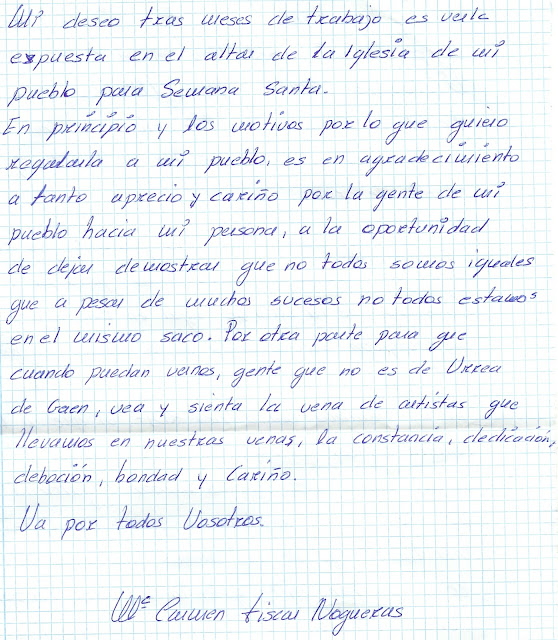 Mi deseo tras meses de trabajo es verla
expuesta en el altar de la Iglesia de mi
pueblo para Semana Santa.
En principio y los motivos por lo que quiero
regalarla a mi pueblo, es en agradecimiento
a tanto aprecio y cariño por la gente de mi
pueblo hacia mi persona, a la oportunidad
de dejar demostrar que no todos somos iguales
que a pesar de muchos sucesos no todos estamos
en el mismo saco. Por otra parte para que
cuando puedan vernos, gente que no es de Urrea
de Gaen, vea y sienta la vena de artistas que
llevamos en nuestras venas, la constancia, dedicación,
deboción, bondad y Cariño.
Va por todos Vosotros.
Mª Carmen Tiscar Nogueras